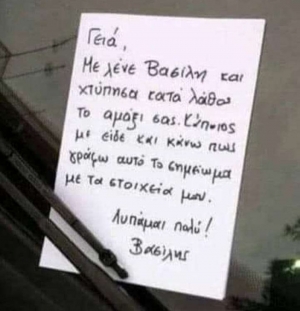 Γειά,
Με λένε Βασίλη και
χτύπησα κατά λάθος
το αμάξι σας. Κάποιος
με είδε και κάνω πως
γράφω αυτό το σημείωμα
με τα στοιχεία μου.
Λυπάμαι πολύ!
Βασίλης